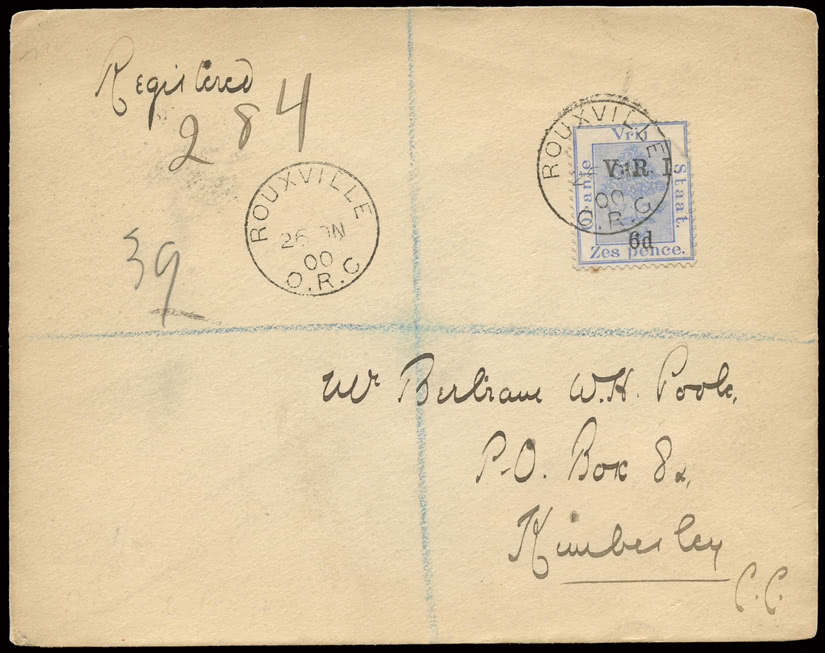 Registered
284
39
ROUXVILLE
26 JN
00
O.R.C
ROUXVILLE
00
O.R.C
Vrij
Oranje
Staat.
V.R.I
6d
Zes pence.
Mr Bertram W.H. Poole,
P.O. Box
Kimberley
C.C.